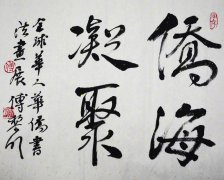 僑海
凝聚
全球華人華僑書
法畫展傅